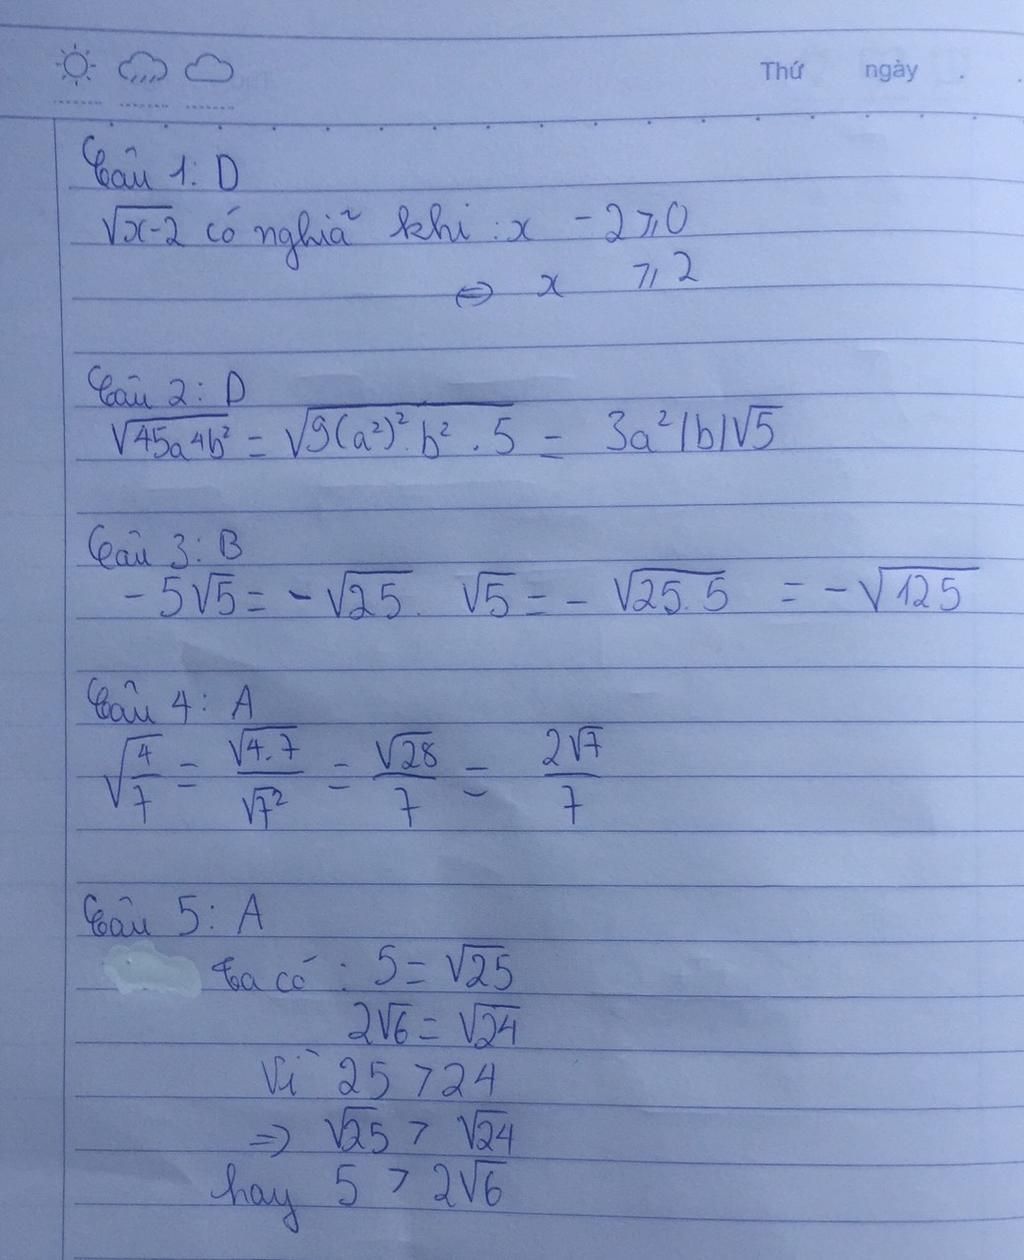 Thứ ngày
Câu 1: D
√x-2 có nghĩa khi: x - 2 ⩾ 0
⇔ x ⩾ 2
Câu 2: D
√45a4b² = √9(a²)².b².5 = 3a²|b|√5
Câu 3: B
- 5√5 = - √25. √5 = - √25.5 = - √125
Câu 4: A
√4/7 = √4.7/√7² = √28/7 = 2√7/7
Câu 5: A
Ta có: 5 = √25
2√6 = √24
Vì 25 > 24
⇒ √25 > √24
hay 5 > 2√6